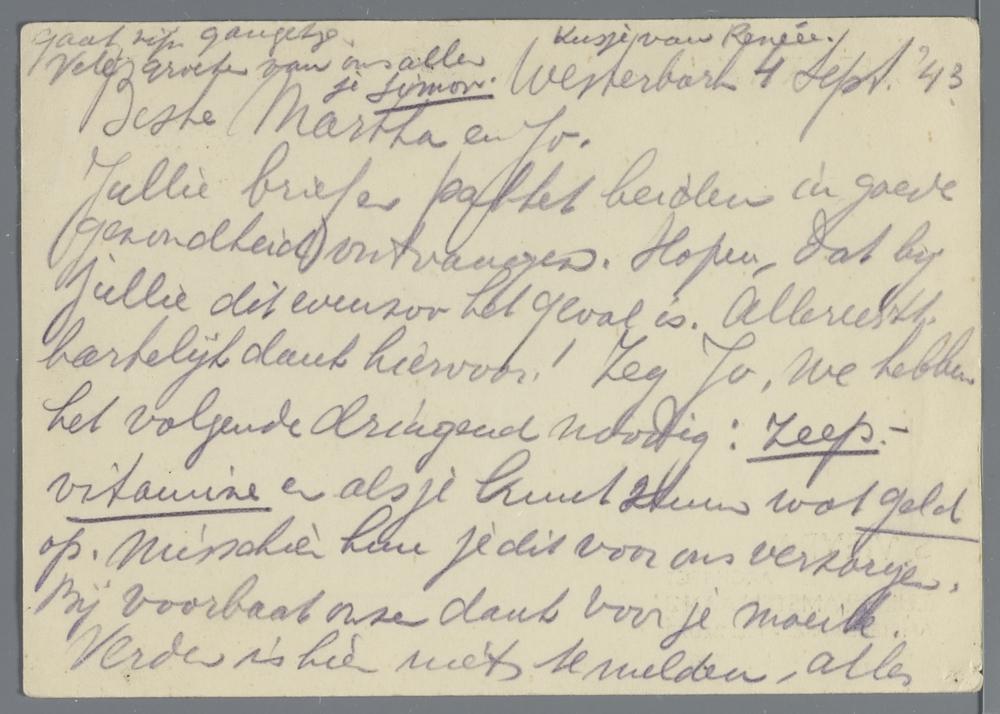 gaat zijn gangetje.
Kusje van Renée.
Vele groeten van ons allen
je Simon.
Westerbork 4 Sept. '43
Beste Martha en Jo.
Jullie brief en pakket beiden in goede
gezondheid ontvangen. Hopen, dat bij
jullie dit evenzoo het geval is. Allereerst
hartelijk dank hiervoor! Zeg Jo, we hebben
het volgende dringend noodig: Zeep.-
vitamine en als je kunt stuur wat geld
op. Misschien kun je dit voor ons verzorgen.
Bij voorbaat onze dank voor je moeite.
Verder is hier niets te melden, alles